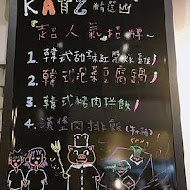 KATZ
超人氣招牌
1、韓式甜辣紅醬炸雞
2、韓式泡菜豆腐鍋
3、韓式豬肉拌飯
4、漢堡肉排飯